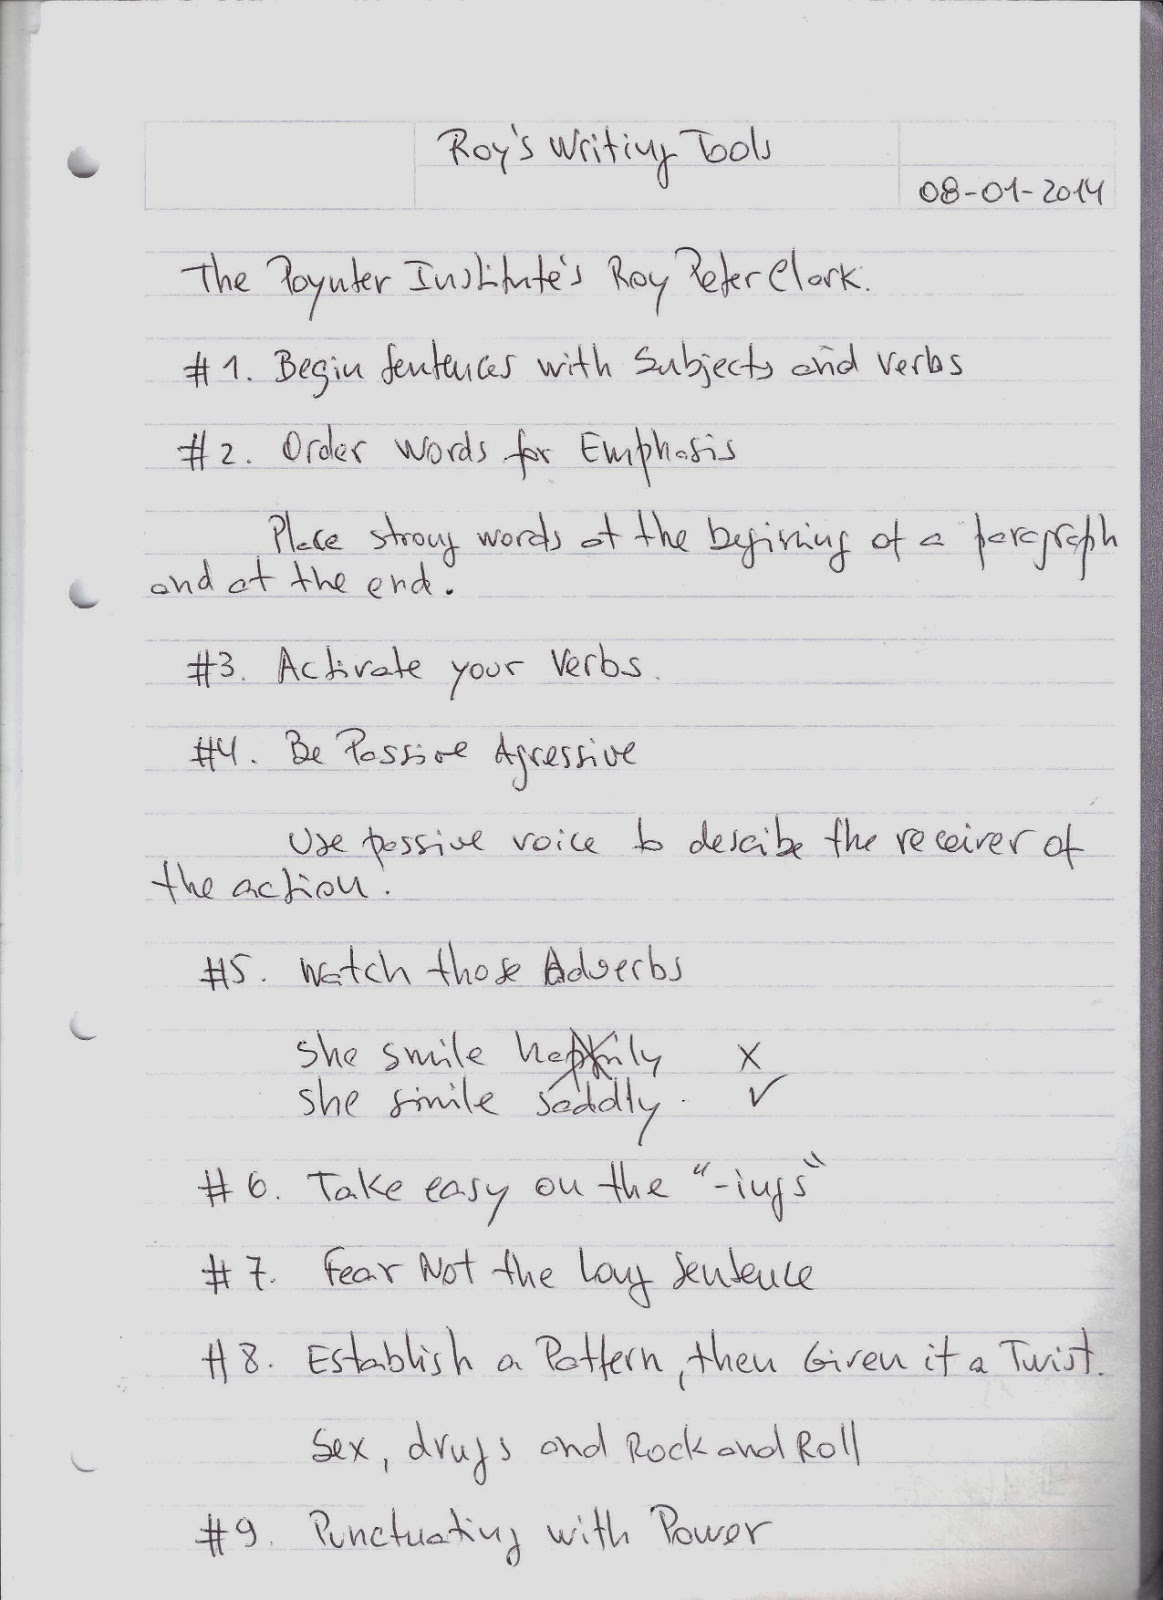 Roy's Writing Tools
08-01-2014
The Poynter Institute's Roy Peter Clark.
#1. Begin Sentences with Subjects and Verbs
#2. Order Words for Emphasis
Place strong words at the begining of a paragraph
and at the end.
#3. Activate your Verbs.
#4. Be Passive Agressive
Use passive voice to descibe the receiver of
the action.
#5. Watch those Adverbs
She smile happily X
She smile saddly. ✓
#6. Take easy on the "-ings"
#7. Fear Not the Long Sentence
#8. Establish a Pattern, then Given it a Twist.
Sex, drugs and Rock and Roll
#9. Punctuating with Power